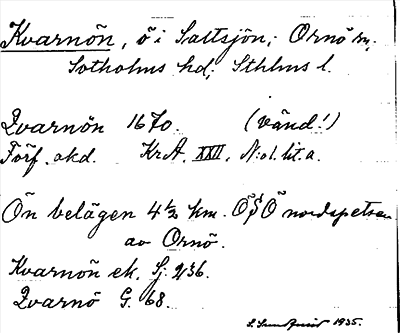 Kvarnön, ö i Saltsjön; Ornö sn,
Sotholms hd; Sthlms l.
Qvarnön 1670. (vänd!)
Förf. okd. KrA. XXII, N:o1. lit. a.
Ön belägen 4½ km. ÖSÖ nordspetsen
av Ornö.
Kvarnön ek. Sj. 236.
Qvarnö G. 68.
S. Sundqvist 1935.